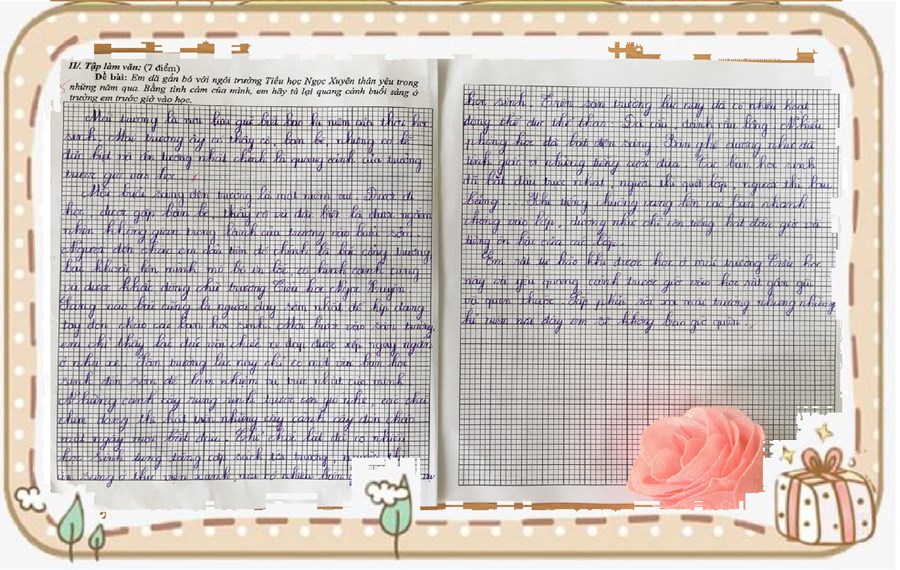 II/. Tập làm văn: (7 điểm)
Đề bài: Em đã gắn bó với ngôi trường Tiểu học Ngọc Xuyên thân yêu trong
những năm qua. Bằng tình cảm của mình, em hãy tả lại quang cảnh buổi sáng ở
trường em trước giờ vào học.
Mái trường là nơi lưu giữ biết bao kỉ niệm của thời học
sinh. Mái trường ấy có thầy cô, bạn bè, nhưng có lẽ
đặc biệt và ấn tượng nhất chính là quang cảnh của trường
trước giờ vào học.
Mỗi buổi sáng đến trường là một niềm vui. Được đi
học, được gặp bạn bè, thầy cô và đặc biệt là được ngắm
nhìn không gian trong lành của trường vào buổi sớm.
Người đón chào em đầu tiên đó chính là bác cổng trường,
bác khoác lên mình bộ to lớn, có hình cánh cung
và được khắc dòng chữ trường Tiểu học Ngọc Xuyên.
Sáng nào bác cũng là người dậy sớm nhất để kịp dang
tay đón chào các bạn học sinh. Mới bước vào sân trường,
em chỉ thấy lác đác vài chiếc xe đạp được xếp ngay ngắn
ở nhà xe. Sân trường lúc này chỉ có một vài bạn học
sinh đến sớm để làm nhiệm vụ trực nhật của mình.
Những cành cây rung rinh trước cơn gió nhẹ, các chú
chim đang thi hát trên những cây cành cây đón chào
một ngày mới bắt đầu. Chỉ chốc lát đã có nhiều
học sinh tung tăng cắp sách tới trường,
ở thư viện xanh, có nhiều bạn
học sinh. Trên sân trường lúc này đã có nhiều hoạt
động thể dục thể thao: Đá cầu, đánh cầu lông. Nhiều
phòng học đã bật đèn sáng. Bàn ghế dường như đã
tỉnh giấc vì những tiếng cười đùa. Các bạn học sinh
đã bắt đầu trực nhật, người thì quét lớp, người thì lau
bảng ... Khi tiếng chuông vang lên các bạn nhanh
chóng vào lớp, dường như chỉ còn tiếng hát đầu giờ và
tiếng ôn bài của các lớp.
Em rất tự hào khi được học ở mái trường Tiểu học
này và yêu quang cảnh trước giờ vào học rất gần gũi
và quen thuộc. Sắp phải rời xa mái trường nhưng những
kỉ niệm nơi đây em sẽ không bao giờ quên.